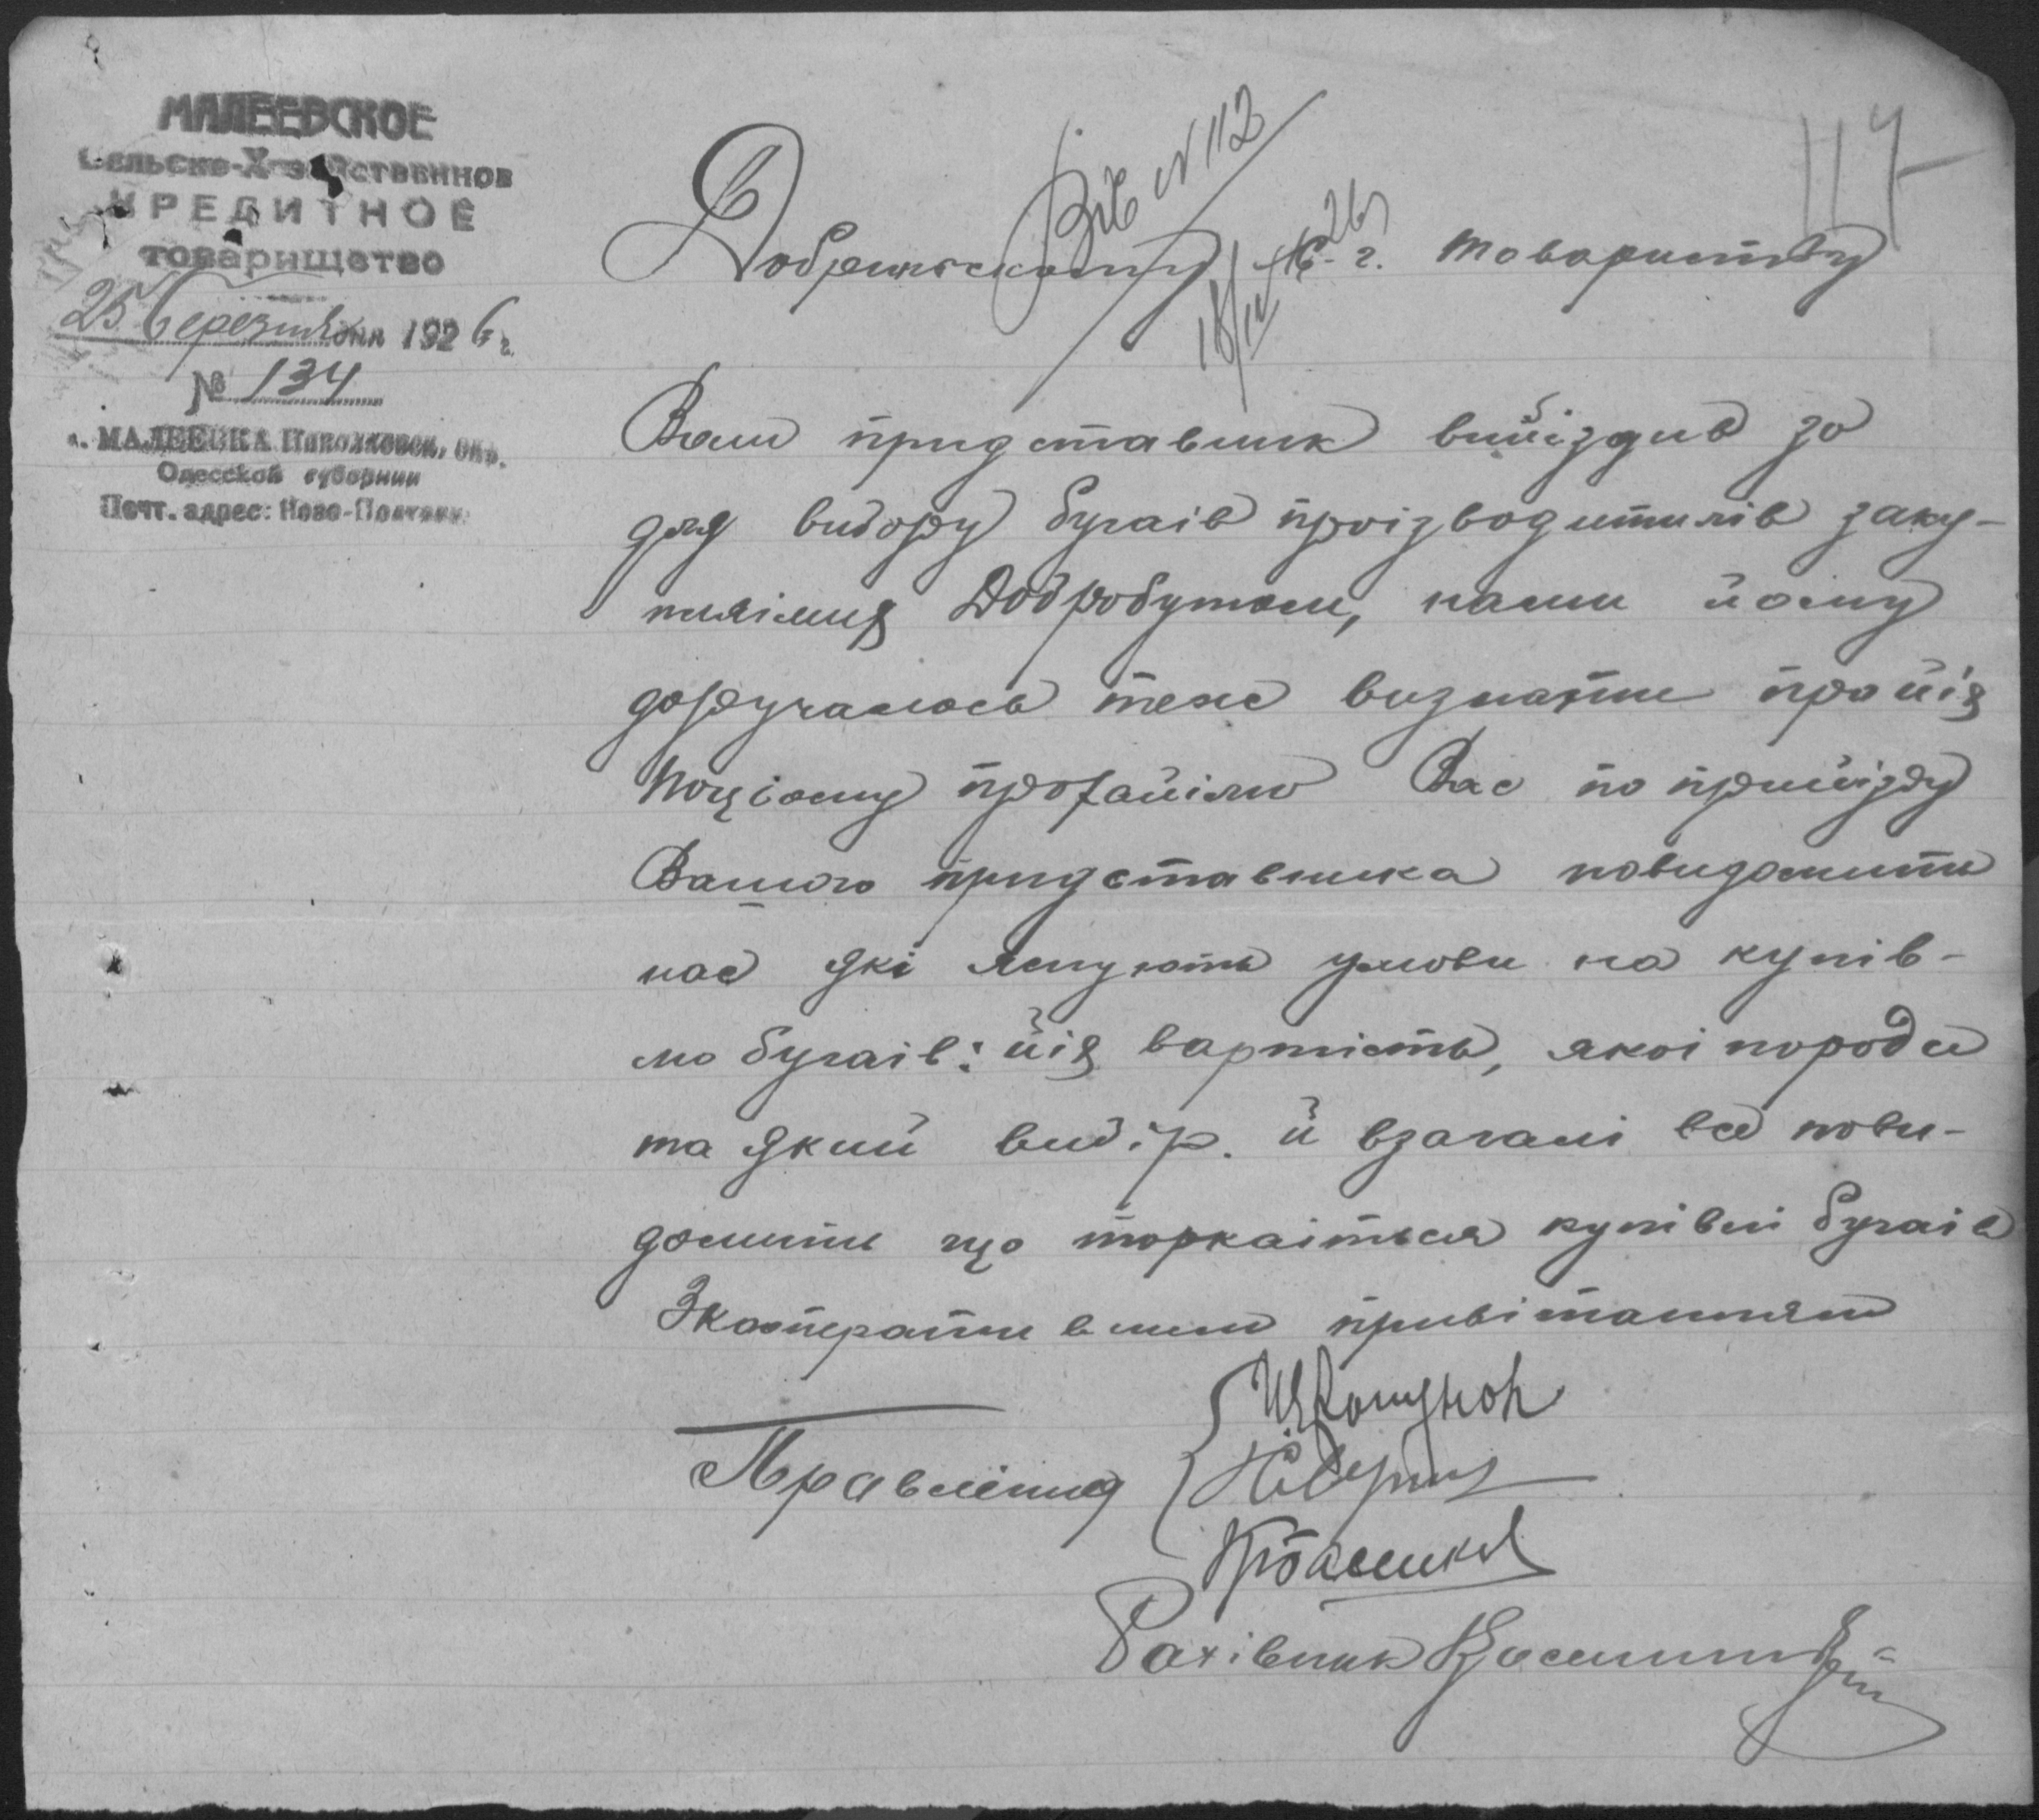 МАЛЕЕВСКОЕ
Сельско-Хозяйственное
КРЕДИТНОЕ
товарищество
25 березня дня 1926 г.
№ 134
д. МАЛЕЕВКА Николаевск. Окр.
Одесской губернии
Почт. адрес: Ново-Полтавка
117
Від N 112
18/IV 26
Добренському с. г. товариству
Ваш придставник виїздив
для вибору бугаів проізводитилів заку-
пляімих Добробутом, нами йому
доручалось теж визнати про йіх
Поцьому прохаїмо Вас по приїзду
Вашого придставника повидомити
нас які існують умови на купів-
лю бугаів: йіх вартість, якоі породи
та який вибір. й взагалі все пови-
домити що торкаіться купівлі бугаів
З кооперативним привітанням
Правлініє
Рахівник